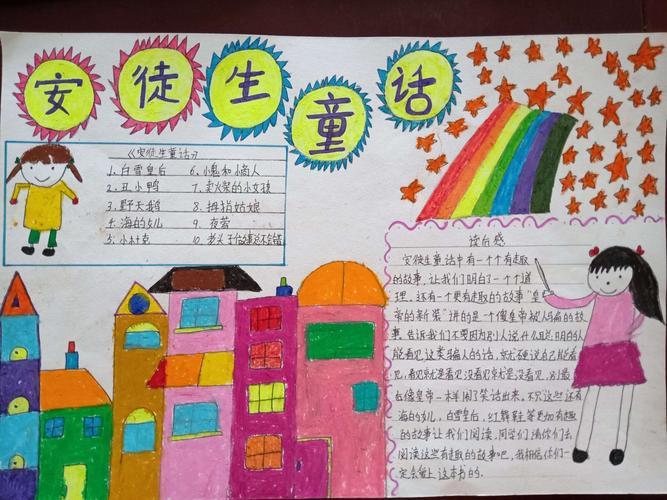 安徒生童话
《安徒生童话》
1、白雪皇后 6、小鬼和小商人
2、丑小鸭 7、卖火柴的小女孩
3、野天鹅 8、拇指姑娘
4、海的女儿 9、夜莺
5、小杜克 10、老头子做事总不会错
读后感
安徒生童话中有一个个有趣
的故事，让我们明白了一个个道
理，还有一个更有趣的故事“皇
帝的新装”讲的是一个傻皇帝被人骗的故
事，告诉我们不要因为别人说什么
能看见这类骗人的话，就硬说自己能看
见，看见就是看见没看见就是没看见，别最
后像皇帝一样闹了笑话出来，不只这些还有
海的女儿，白雪皇后，红舞鞋等更加有趣
的故事让我们阅读，同学们请你们去
阅读这些有趣的故事吧，我相信你们一
定会爱上这本书的。